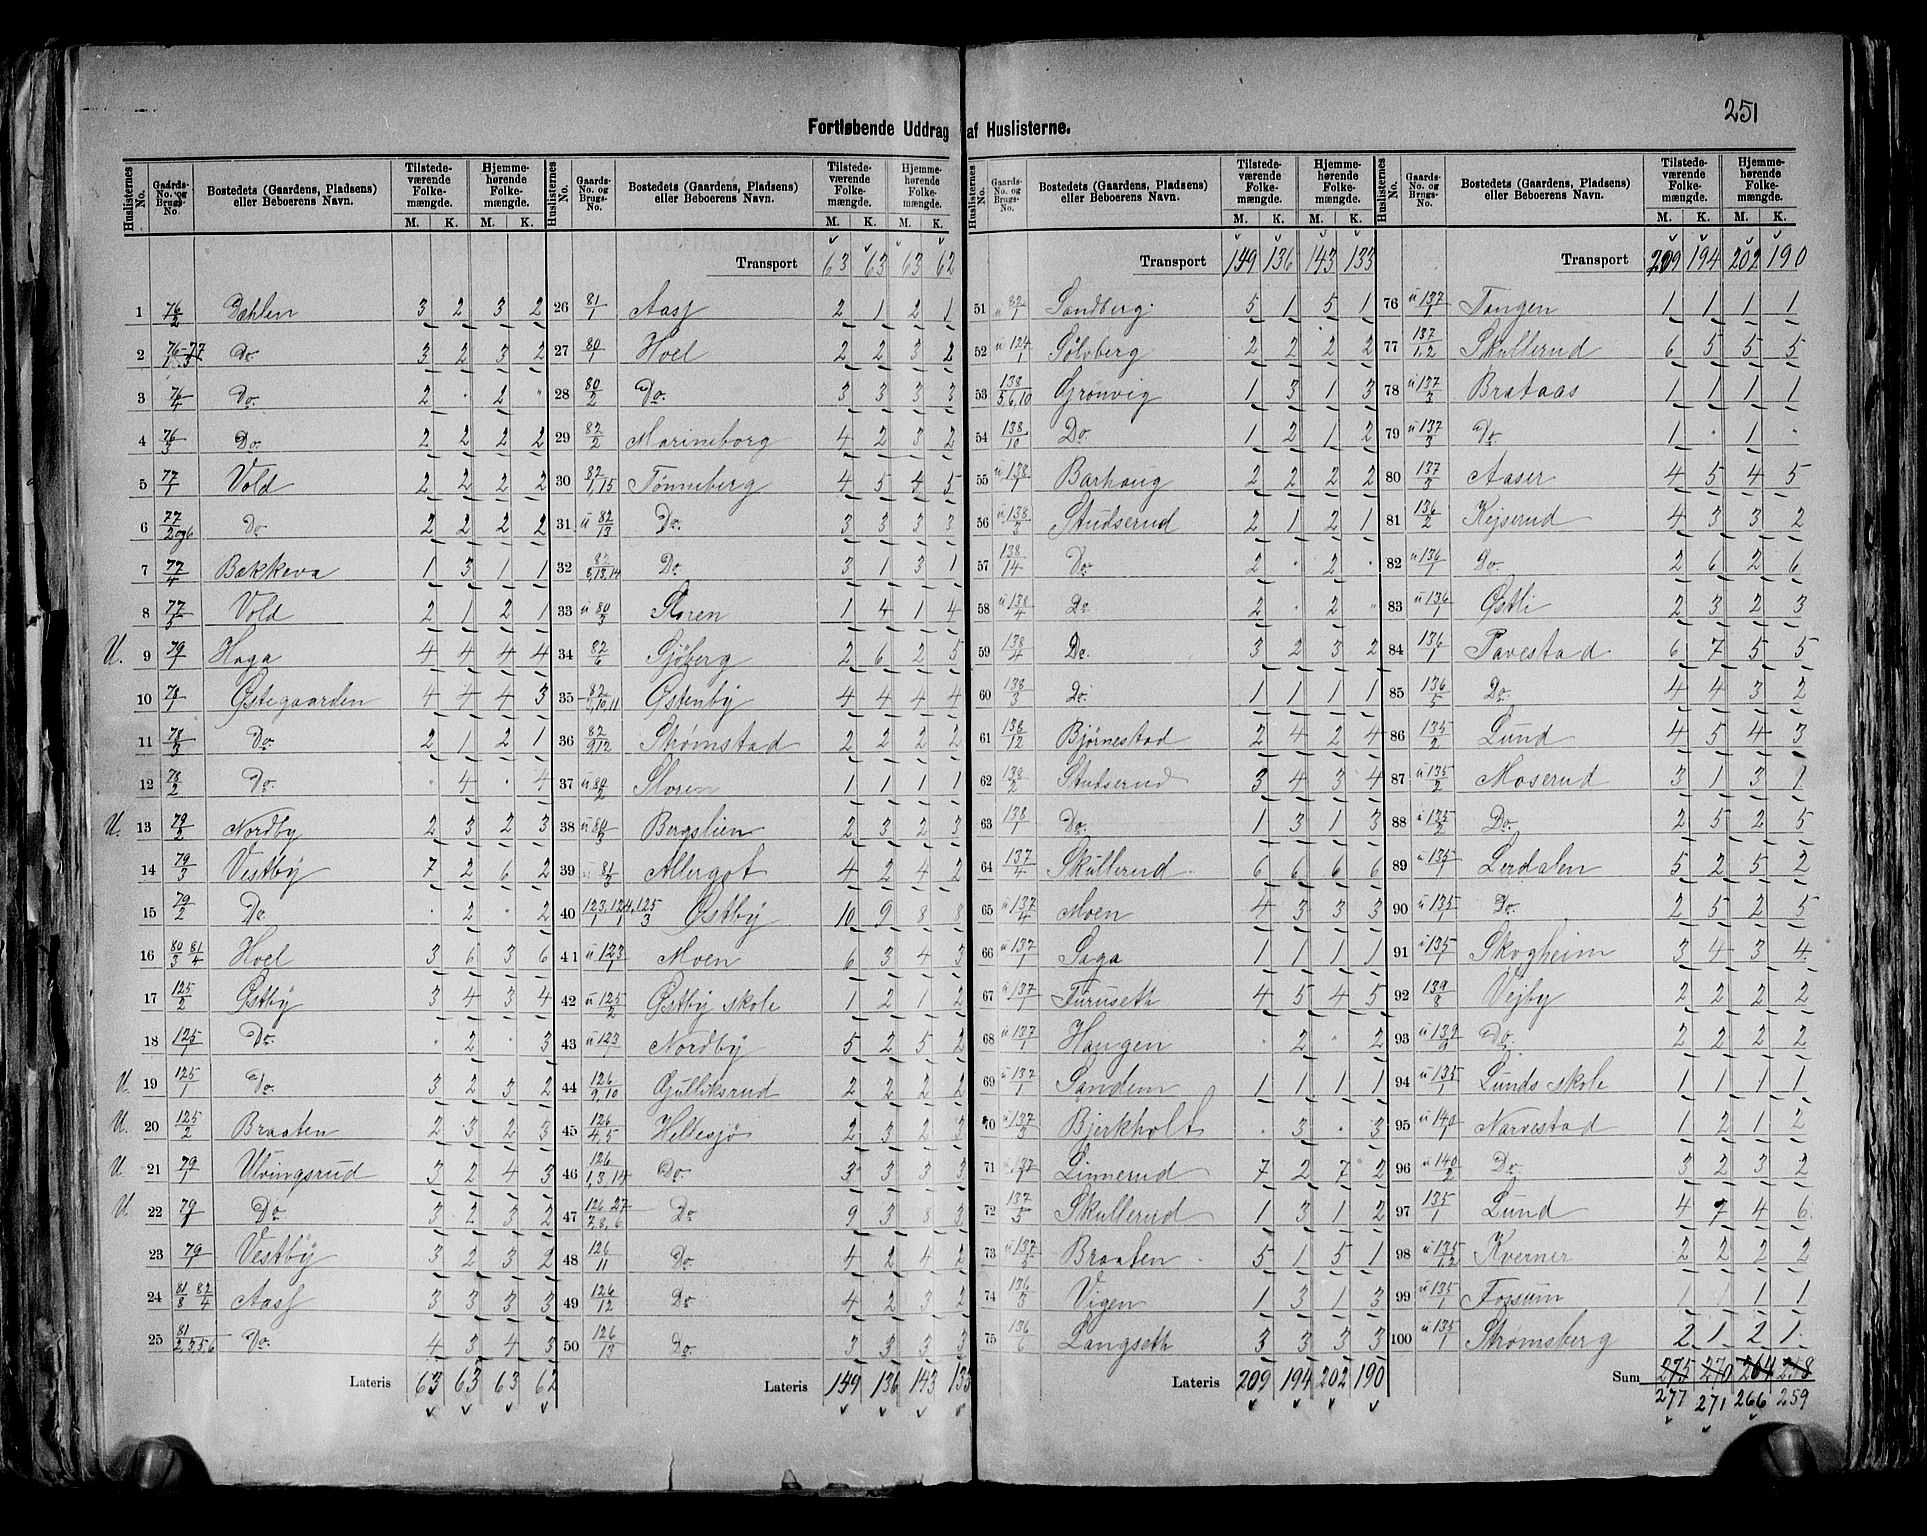 251
Fortløbende Uddrag af Huslisterne.
Huslisternes No. | Gaards-No. og Brugs-No. | Bostedets (Gaardens, Pladsens) eller Beboerens Navn. | Tilstedeværende Folkemængde. M. K. | Hjemmehørende Folkemængde. M. K.
1 76/2 Dæhlen 3 2 3 2
2 Do 3 2 3 2
3 Do. 2 . 2 "
4 76/3 Do. 2 2 2 2
5 77/1 Vold 2 2 2 2
6 77/2og6 Do 2 2 2 2
7 77/4 Bækkeva 1 3 1 1
8 77/3 Vold 2 1 2 1
U. 9 79/1 Haga 4 4 4 4
10 78/1 Østegaarden 4 4 4 3
11 78/3 Do. 2 1 2 1
12 78/2 Do. . 4 . 4
U. 13 79/2 Nordby 2 3 2 3
14 79/3 Vestby 7 2 6 2
15 79/2 Do . 2 . 2
16 80/3 81/4 Hoel 3 6 3 6
17 125/2 Østby 3 4 3 4
18 125/1 Do. . 2 . 3
U. 19 125/1 Do. 3 2 3 2
U. 20 125/2 Braaten 2 3 2 3
U. 21 79/1 Ulvingsrud 3 2 4 3
U. 22 79/1 Do. 3 2 3 2
23 79/1 Vestby 3 2 3 2
24 81/8 82/4 Aas 3 3 3 3
25 Do. 4 3 4 3
Lateris 63 63 63 62
Huslisternes No. | Gaards-No. og Brugs-No. | Bostedets (Gaardens, Pladsens) eller Beboerens Navn. | Tilstedeværende Folkemængde. M. K. | Hjemmehørende Folkemængde. M. K.
Transport 63 63 63 62
26 81/1 Aas 2 1 2 1
27 80/1 Hoel 2 2 3 2
28 80/2 Do. 3 3 3 3
29 82/2 Marineborg 4 2 3 2
30 82/1,15 Tønneberg 4 5 4 5
31 u 82/13 Do. 3 3 3 3
32 82/3,13,14 Do. 3 1 3 1
33 u 80/3 Floren 1 4 1 4
34 82/6 Sjøberg 2 6 2 5
35 Østenby 4 4 4 4
36 82/9,12 Strømstad 2 2 2 2
37 u 80/2 Floren 1 1 1 1
38 u 80/3 Bergslien 2 3 2 3
39 81/3 Allergot 4 2 4 2
40 123/1, 124/1, 125/3 Østby 10 9 8 8
41 u 123/1 Moen 6 3 4 3
42 u 125/2 Østby skole 1 2 1 2
43 u 123/1 Nordby 5 2 5 2
44 126/9,10 Gulliksrud 2 2 2 2
45 126/4,5 Heltesjø 2 3 2 3
46 126/1,3,14 Do. 3 3 3 3
47 126 27/7,8,6 Do 9 3 8 3
48 126/11 Do. 4 2 4 2
49 126/12 Do 4 2 3 2
50 126/13 Do. 3 3 3 3
Lateris 149 136 143 133
Huslisternes No. | Gaards-No. og Brugs-No. | Bostedets (Gaardens, Pladsens) eller Beboerens Navn. | Tilstedeværende Folkemængde. M. K. | Hjemmehørende Folkemængde. M. K.
Transport 149 136 143 133
51 u 82/1 Sandberg. 5 1 5 1
52 u 124/1 Sølvberg 2 2 2 2
53 138/5,6,10 Grønvig 1 3 1 3
54 138/10 Do. 1 2 1 2
55 u 138/1 Barhaug 2 2 2 2
56 u 138/3 Studserud 2 1 2 1
57 138/14 Do. 2 . 2 .
58 u 138/4 Do. 2 . 2 "
59 138/4 Do. 3 2 3 2
60 138/3 Do. 1 1 1 1
61 138/12 Bjørnestad 2 4 2 4
62 138/2 Studserud 3 4 3 4
63 138/1 Do. 1 3 1 3
64 137/4 Skullerud. 6 6 6 6
65 u 137/4 Moen 4 3 3 3
66 u 137/1 Saga 1 1 1 1
67 u 137/1 Furuseth 4 5 4 5
68 u 137/1 Haugen . 2 " 2
69 u 137/1 Sandem 1 1 1 1
70 u 137/3 Bjerkholt . 3 . 3
71 u 137/1 Linnerud 7 2 7 2
72 137/5 Skullerud 1 3 1 2
73 u 137/5 Braaten 5 1 5 1
74 136/3 Vigen 1 3 1 3
75 136/6 Langseth 3 3 3 3
Lateris 209 194 202 190
Huslisternes No. | Gaards-No. og Brugs-No. | Bostedets (Gaardens, Pladsens) eller Beboerens Navn. | Tilstedeværende Folkemængde. M. K. | Hjemmehørende Folkemængde. M. K.
Transport 209 194 202 190
76 u 137/1 Tangen 1 1 1 1
77 137/1,2 Skullerud 6 5 5 5
78 u 137/3 Brataas 1 1 1 1
79 u 137/3 Do. 1 . 1 .
80 137/3 Aaser 4 5 4 5
81 136/2 Kejserud 4 3 3 2
82 u 136/1 Do. 2 6 2 6
83 u 136/1 Østli 2 3 2 3
84 136/1 Tavestad. 6 7 5 5
85 136/5 Do. 4 4 3 2
86 135/2 Lund 4 5 4 3
87 u 135/2 Moserud 3 1 3 1
88 u 135/2 Do. 2 5 2 5
89 u 135/1 Lerdalen 5 2 5 2
90 u 135/1 Do. 2 5 2 5
91 u 135/1 Skogheim 3 4 3 4
92 139/8 Vejby 2 2 2 2
93 u 139/9 Do. 2 2 2 2
94 u 135/1 Lunds skole 1 1 1 1
95 u 140/1 Narvestad 1 2 1 2
96 u 140/2 Do. 3 2 3 2
97 135/1 Lund 4 7 4 6.
98 u 135/1,2 Kverner 2 2 2 2
99 u 135/1 Forsum 1 1 1 1
100 u 135/1 Strømsberg 2 1 2 1.
Sum 275 270 264 258
277 271 266 259